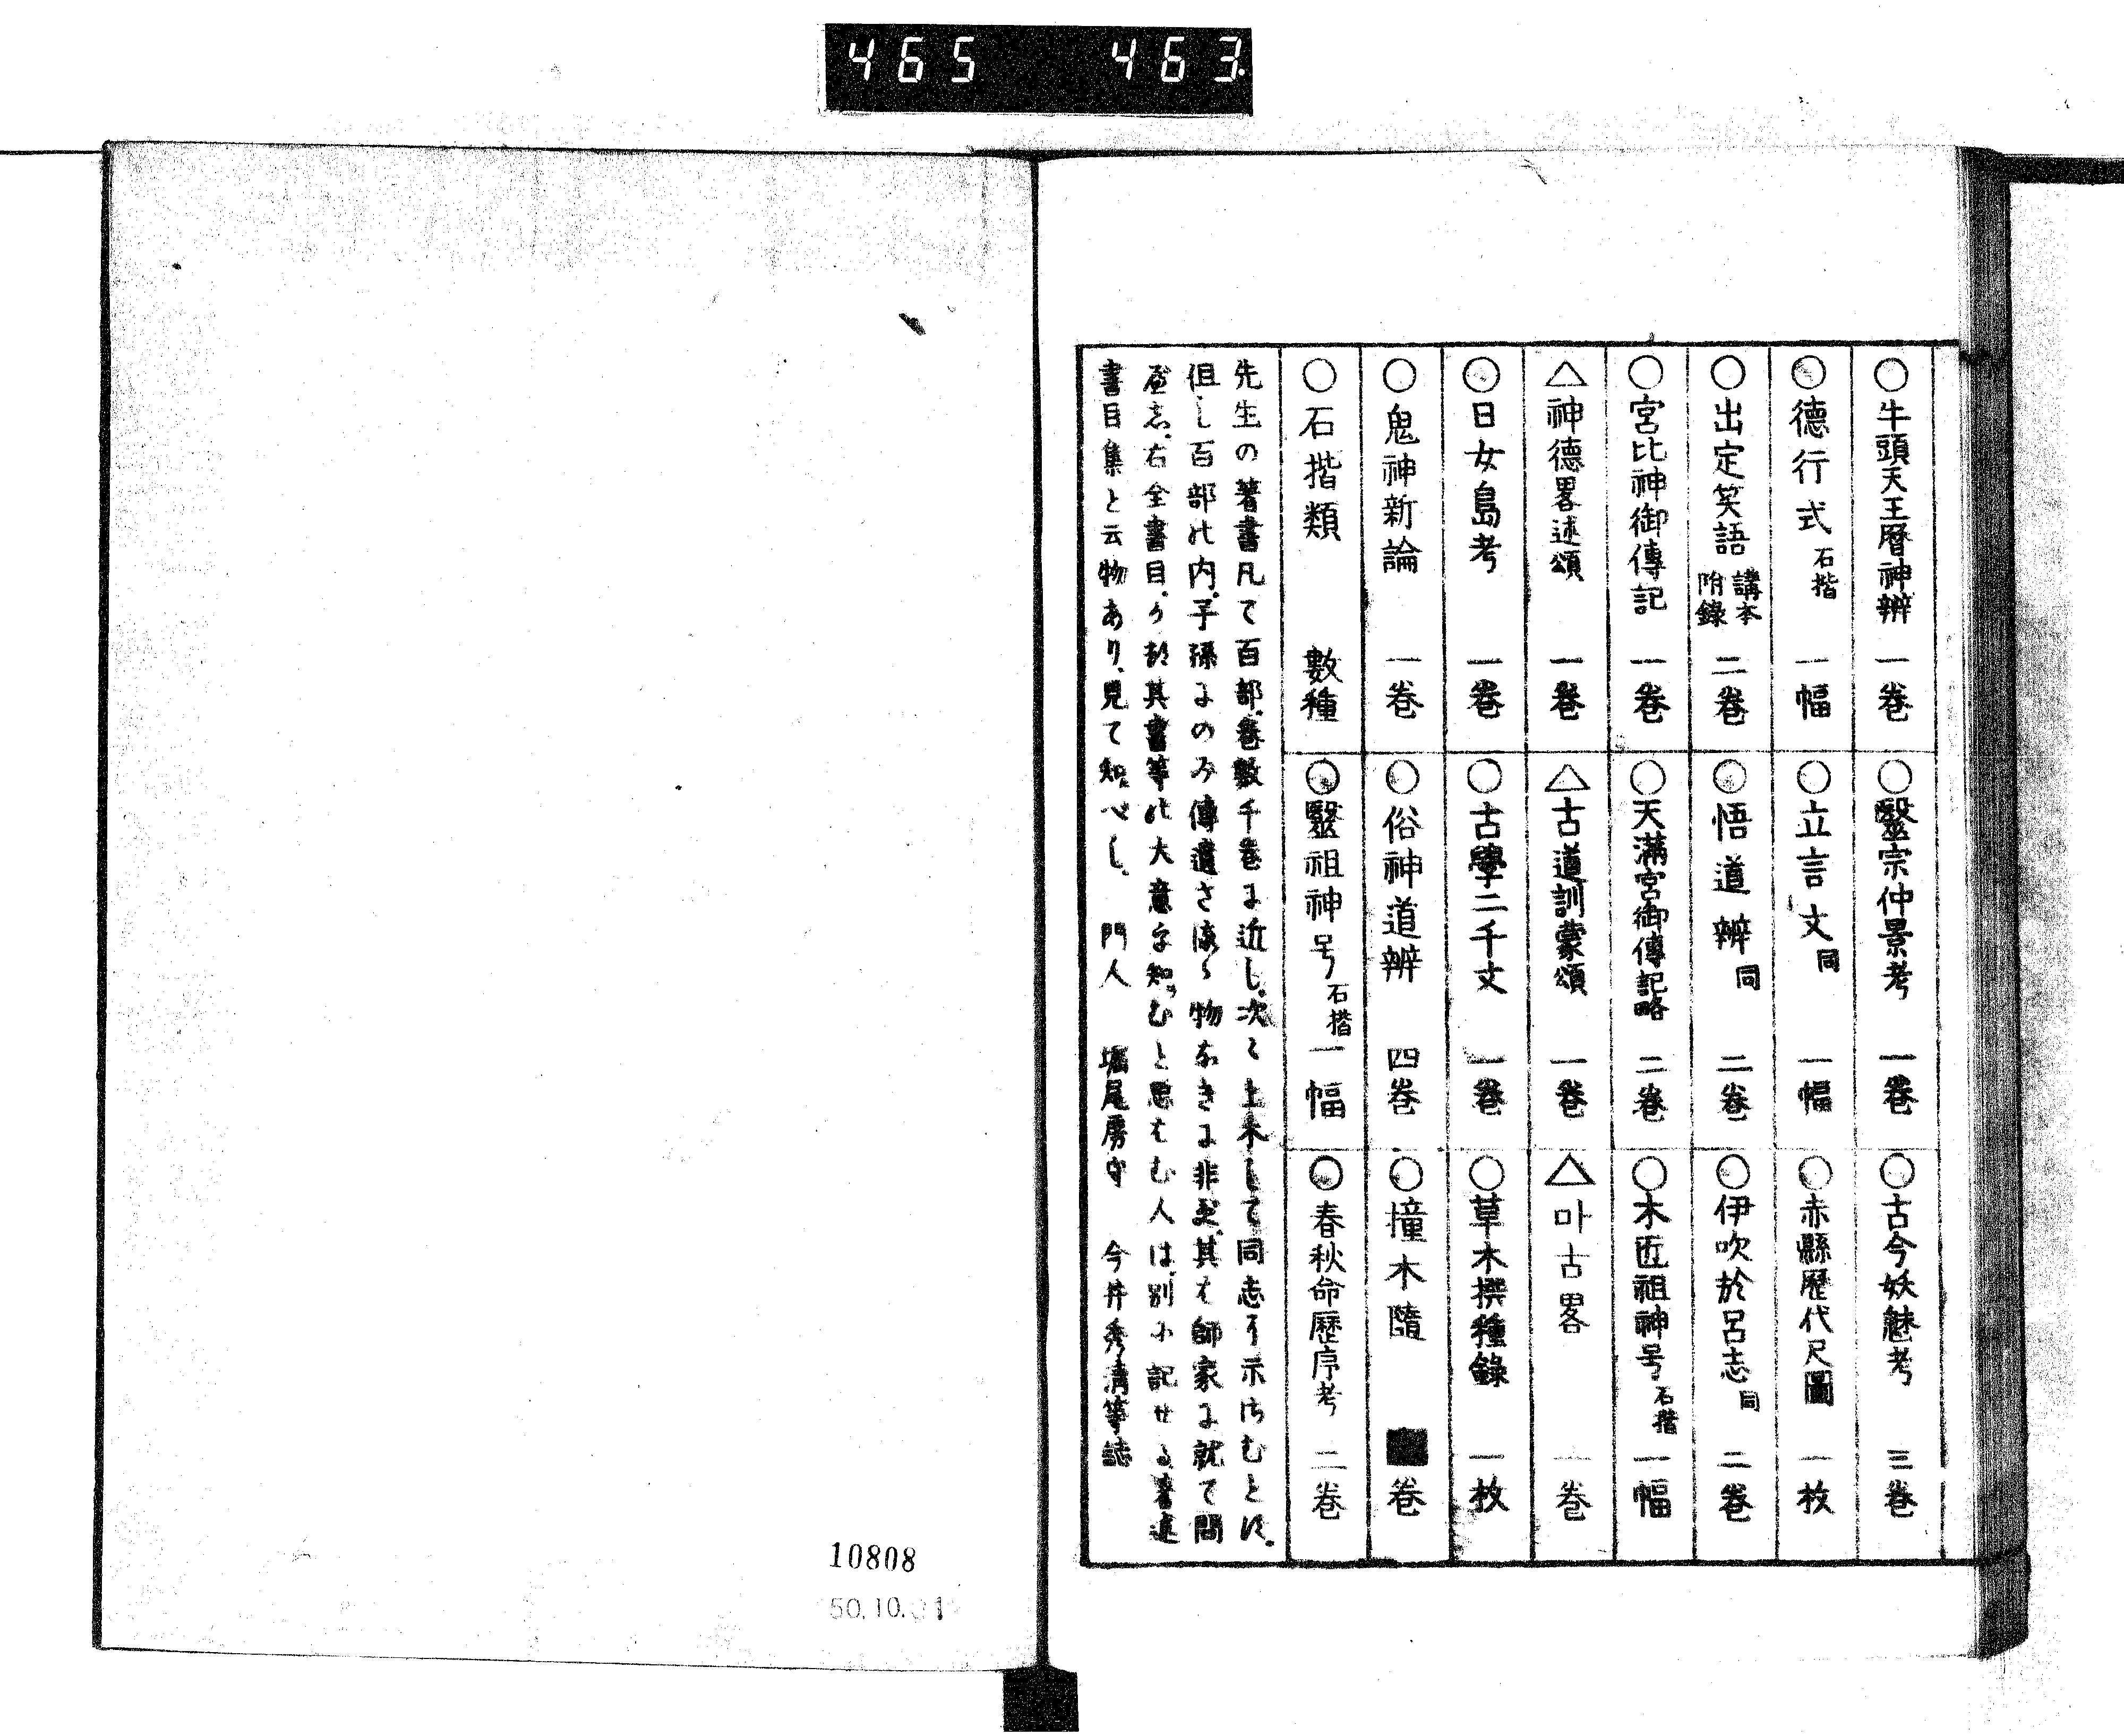 465 463
○牛頭天王暦神辨 一巻
○毉宗仲景考 一巻
○古今妖魅考 三巻
○德行式 石摺 一幅
○立言文 同 一幅
○赤縣歷代尺圖 一枚
○出定笑語 講本附錄 二巻
○悟道辨 同 二巻
○伊吹於呂志 同 二巻
○宮比神御傳記 一巻
○天滿宮御傳記略 二巻
○木匠祖神号 石摺 一幅
△神德畧述頌 一巻
△古道訓蒙頌 一巻
△マ古畧 一巻
○日女島考 一巻
○古學二千文 一巻
○草木撰種錄 一枚
○鬼神新論 一巻
○俗神道辨 四巻
○撞木隨 巻
○石摺類 數種
○毉祖神号 石摺 一幅
○春秋命歷序考 二巻
先生の著書凡て百部、巻數千巻に近し、次〻上木して同志に示さむとす。
但し百部の内、子孫にのみ傳遺さるゝ物なきに非ず、其は師家に就て問
べし、右全書目、及其書等の大意を知らむと思はむ人は、別に記せる著述
書目集と云物あり、見て知べし。 門人 堀尾房守 今井秀清等誌
10808
50.10.31